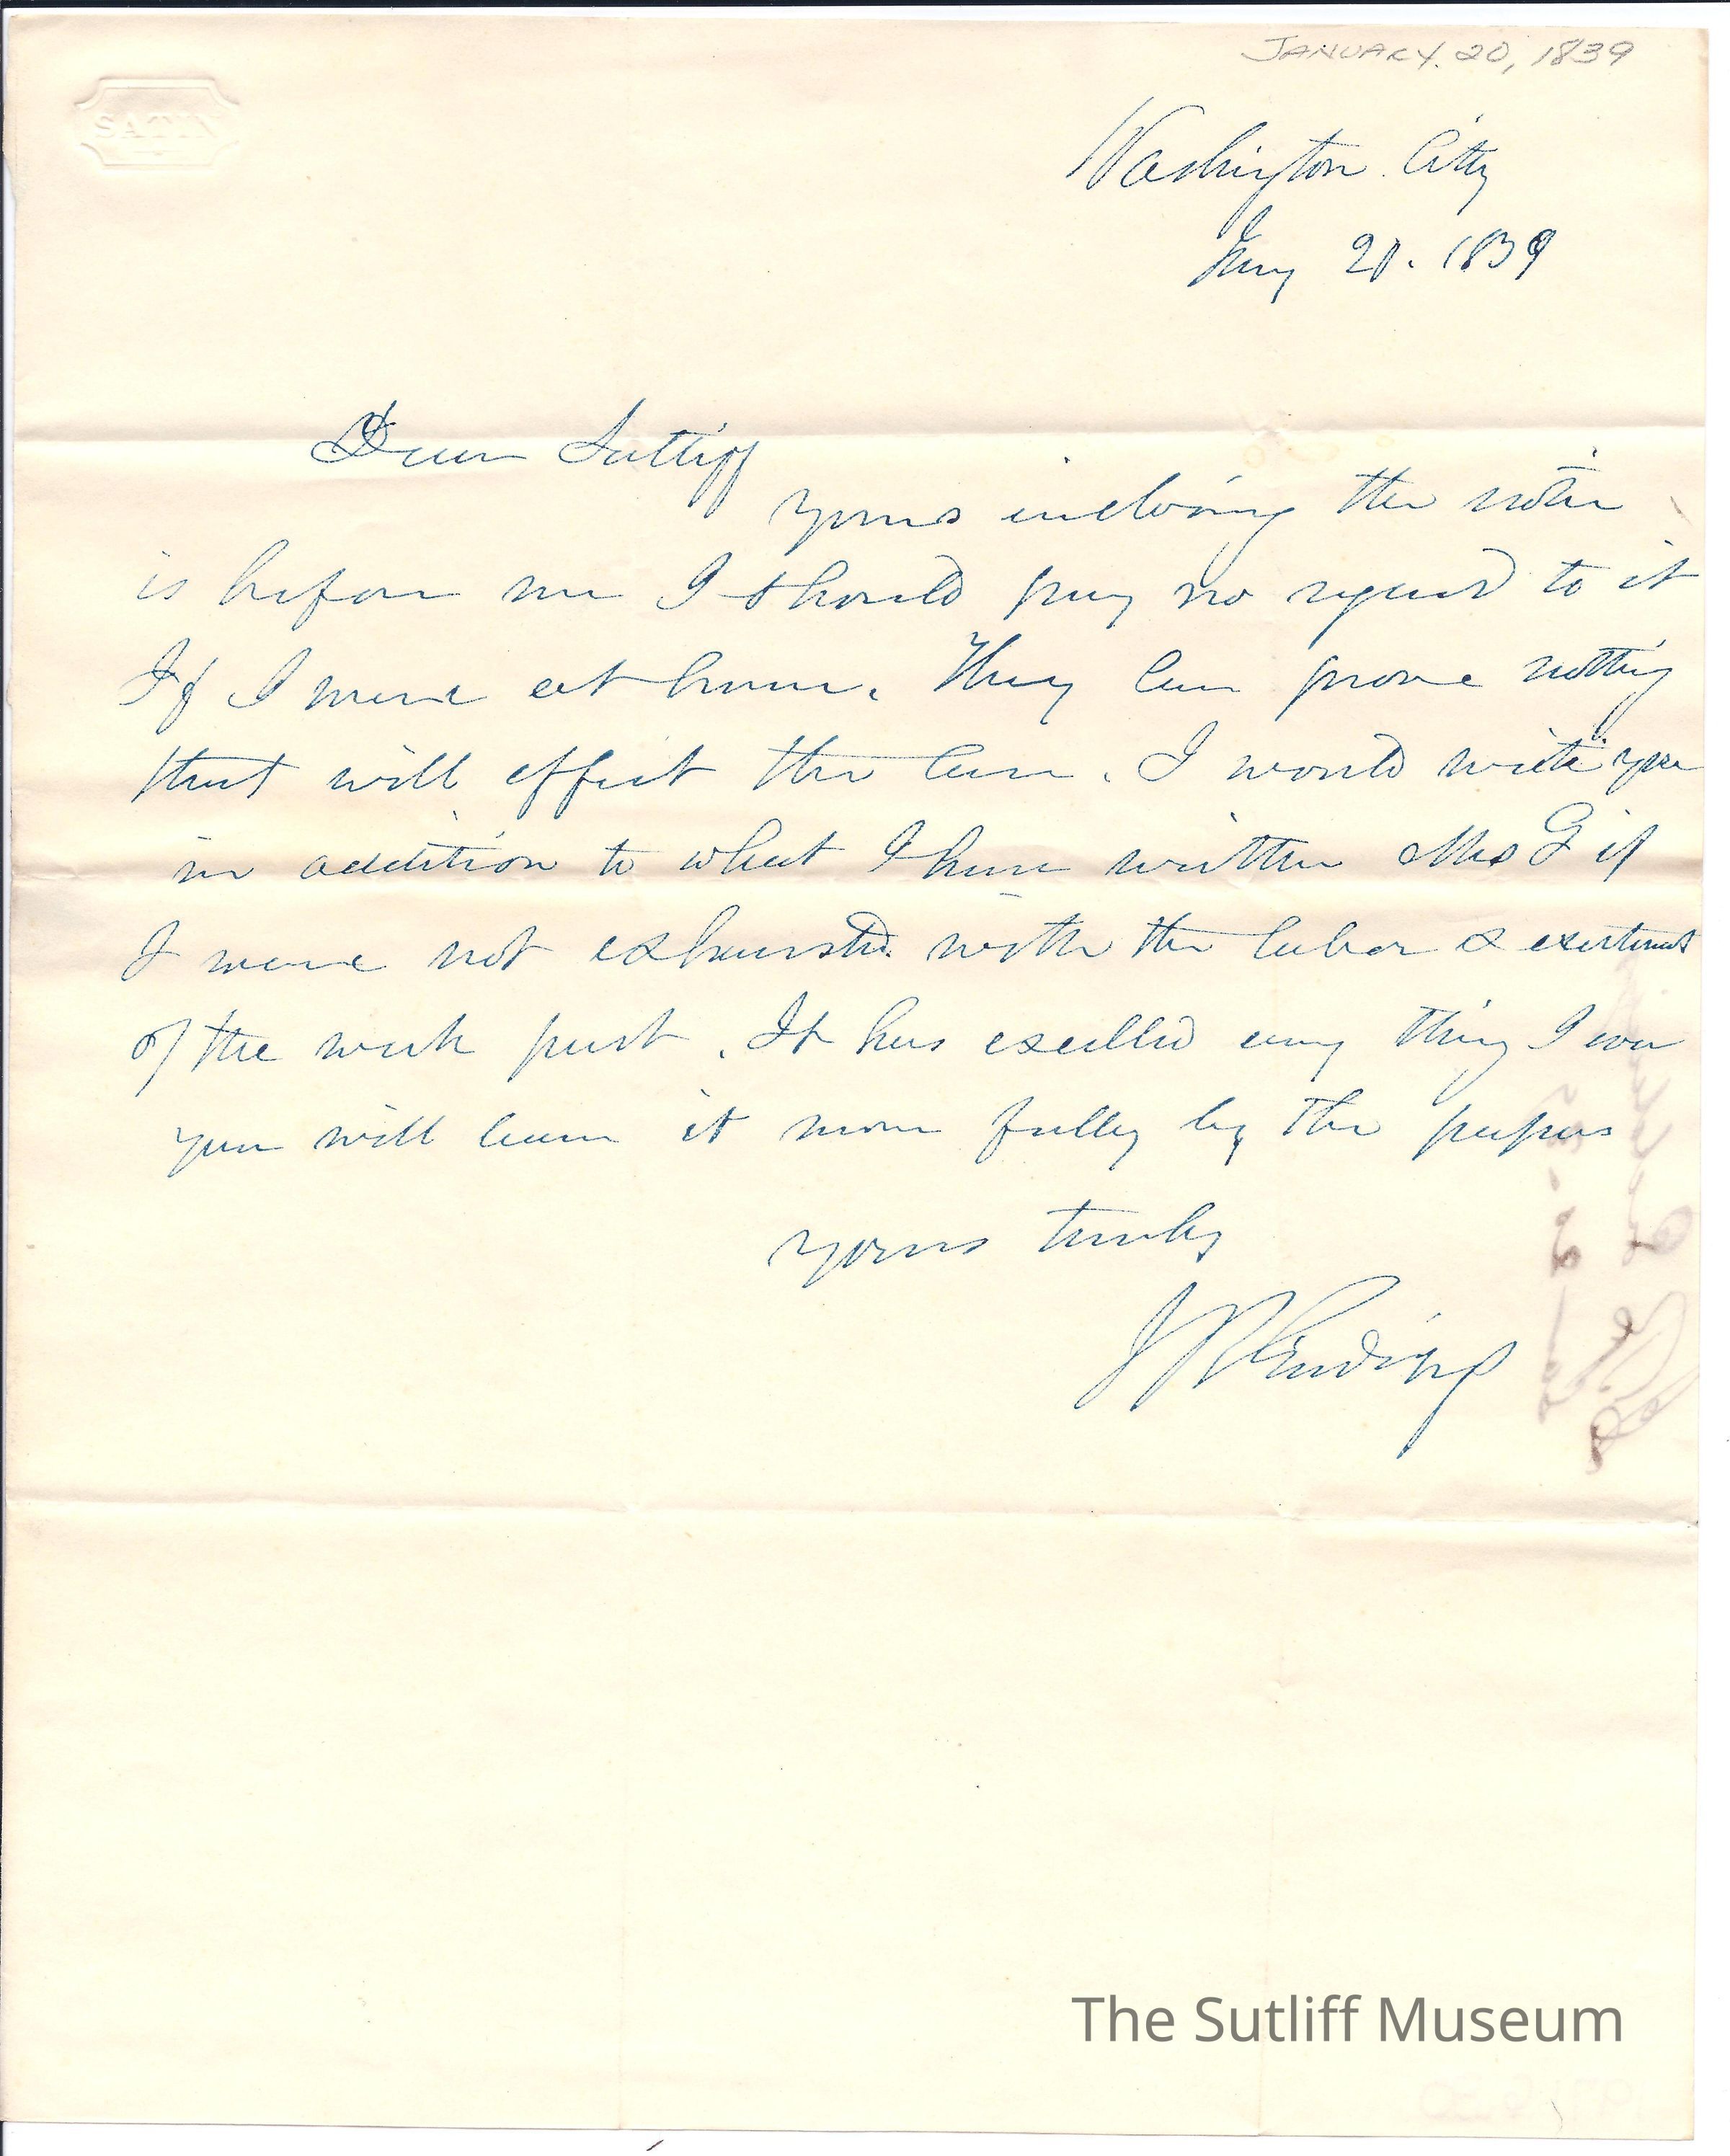 JANUARY. 20, 1839
SATIN
Washington City
Jany 20. 1839
Dear Sutliff
yours inclosing the notice
is before me I should pay no regard to it
If I were at home. They can prove nothing
that will effect the case. I would write you
in addition to what I have written Mrs G if
I were not exhausted with the labor & excitement
of the week past. It has excelled any thing I ever
you will learn it more fully by the papers
yours truly
J R Giddings
The Sutliff Museum